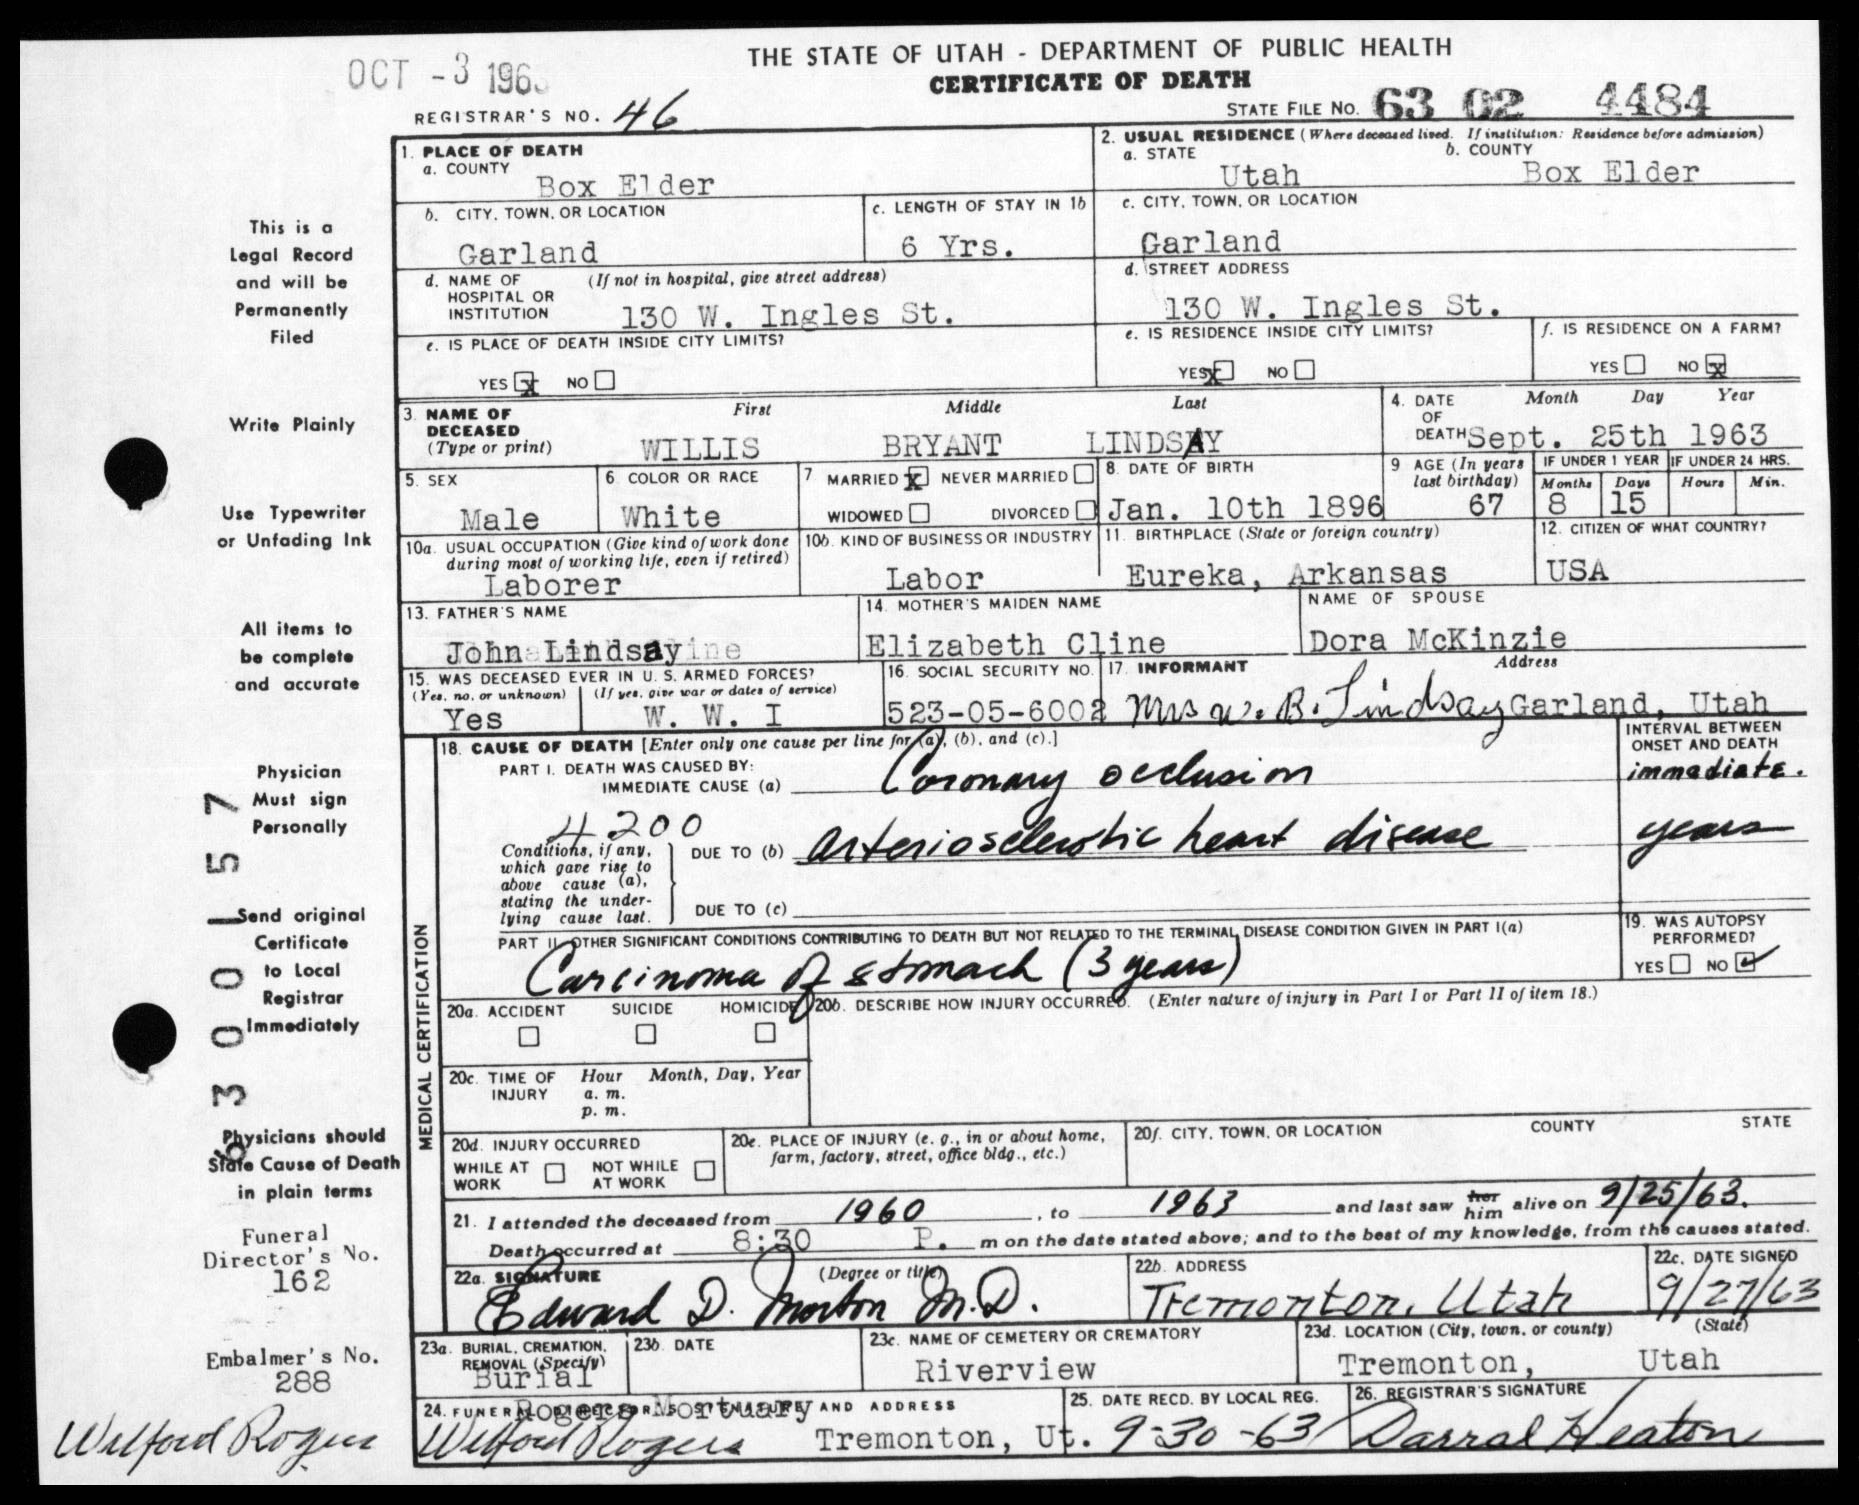 THE STATE OF UTAH - DEPARTMENT OF PUBLIC HEALTH
OCT -3 196
CERTIFICATE OF DEATH
REGISTRAR'S NO. 46
STATE FILE NO. 63 02 4484
1. PLACE OF DEATH
a. COUNTY
Box Elder
2. USUAL RESIDENCE (Where deceased lived. If institution: Residence before admission)
a. STATE b. COUNTY
Utah Box Elder
b. CITY, TOWN, OR LOCATION
Garland
c. LENGTH OF STAY IN 1b
6 Yrs.
c. CITY, TOWN, OR LOCATION
Garland
d. NAME OF HOSPITAL OR INSTITUTION (If not in hospital, give street address)
130 W. Ingles St.
d. STREET ADDRESS
130 W. Ingles St.
e. IS PLACE OF DEATH INSIDE CITY LIMITS?
YES x NO
e. IS RESIDENCE INSIDE CITY LIMITS?
YES x NO
f. IS RESIDENCE ON A FARM?
YES NO x
3. NAME OF DECEASED (Type or print)
First Middle Last
WILLIS BRYANT LINDSAY
4. DATE OF DEATH
Month Day Year
Sept. 25th 1963
5. SEX
Male
6. COLOR OR RACE
White
7 MARRIED x NEVER MARRIED
WIDOWED DIVORCED
8. DATE OF BIRTH
Jan. 10th 1896
9 AGE (In years last birthday)
67
IF UNDER 1 YEAR
Months Days
8 15
IF UNDER 24 HRS.
Hours Min.
10a. USUAL OCCUPATION (Give kind of work done during most of working life, even if retired)
Laborer
10b. KIND OF BUSINESS OR INDUSTRY
Labor
11. BIRTHPLACE (State or foreign country)
Eureka, Arkansas
12. CITIZEN OF WHAT COUNTRY?
USA
13. FATHER'S NAME
John Lindsay
14. MOTHER'S MAIDEN NAME
Elizabeth Cline
NAME OF SPOUSE
Dora McKinzie
15. WAS DECEASED EVER IN U. S. ARMED FORCES?
(Yes, no, or unknown) (If yes, give war or dates of service)
Yes W. W. I
16. SOCIAL SECURITY NO.
523-05-6002
17. INFORMANT Address
Mrs W. B. Lindsay Garland, Utah
MEDICAL CERTIFICATION
18. CAUSE OF DEATH [Enter only one cause per line for (a), (b), and (c).]
INTERVAL BETWEEN ONSET AND DEATH
PART I. DEATH WAS CAUSED BY:
IMMEDIATE CAUSE (a) Coronary occlusion immediate.
4200
Conditions, if any, which gave rise to above cause (a), stating the underlying cause last.
DUE TO (b) arteriosclerotic heart disease years
DUE TO (c)
PART II. OTHER SIGNIFICANT CONDITIONS CONTRIBUTING TO DEATH BUT NOT RELATED TO THE TERMINAL DISEASE CONDITION GIVEN IN PART I(a)
Carcinoma of stomach (3 years)
19. WAS AUTOPSY PERFORMED?
YES NO ✓
20a. ACCIDENT SUICIDE HOMICIDE
20b. DESCRIBE HOW INJURY OCCURRED. (Enter nature of injury in Part I or Part II of item 18.)
20c. TIME OF INJURY Hour Month, Day, Year
a. m.
p. m.
20d. INJURY OCCURRED
WHILE AT WORK NOT WHILE AT WORK
20e. PLACE OF INJURY (e. g., in or about home, farm, factory, street, office bldg., etc.)
20f. CITY, TOWN, OR LOCATION COUNTY STATE
21. I attended the deceased from 1960, to 1963 and last saw her him alive on 9/25/63.
Death occurred at 8:30 P. m on the date stated above; and to the best of my knowledge, from the causes stated.
22a. SIGNATURE (Degree or title)
Edward D. Morton M.D.
22b. ADDRESS
Tremonton, Utah
22c. DATE SIGNED
9/27/63
23a. BURIAL, CREMATION, REMOVAL (Specify)
Burial
23b. DATE
23c. NAME OF CEMETERY OR CREMATORY
Riverview
23d. LOCATION (City, town, or county) (State)
Tremonton, Utah
24. FUNERAL DIRECTOR'S SIGNATURE AND ADDRESS
Rogers Mortuary
Wilford Rogers Tremonton, Ut.
25. DATE RECD. BY LOCAL REG.
9-30-63
26. REGISTRAR'S SIGNATURE
Darral Heaton
This is a
Legal Record
and will be
Permanently
Filed
Write Plainly
Use Typewriter
or Unfading Ink
All items to
be complete
and accurate
Physician
Must sign
Personally
Send original
Certificate
to Local
Registrar
Immediately
Physicians should
State Cause of Death
in plain terms
6 3 0 0 1 5 7
Funeral
Director's No.
162
Embalmer's No.
288
Wilford Rogers